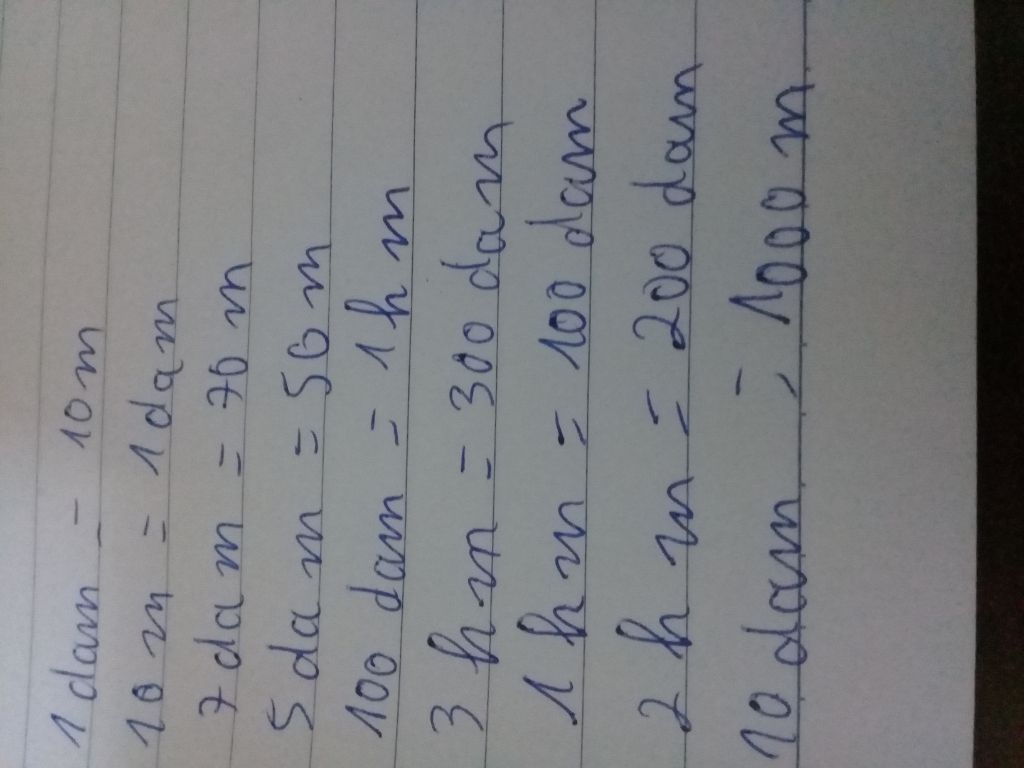 1 dam = 10 m
10 m = 1 dam
7 dam = 70 m
5 dam = 50 m
100 dam = 1 hm
3 hm = 300 dam
1 hm = 100 dam
2 hm = 200 dam
10 dam = 1000 m